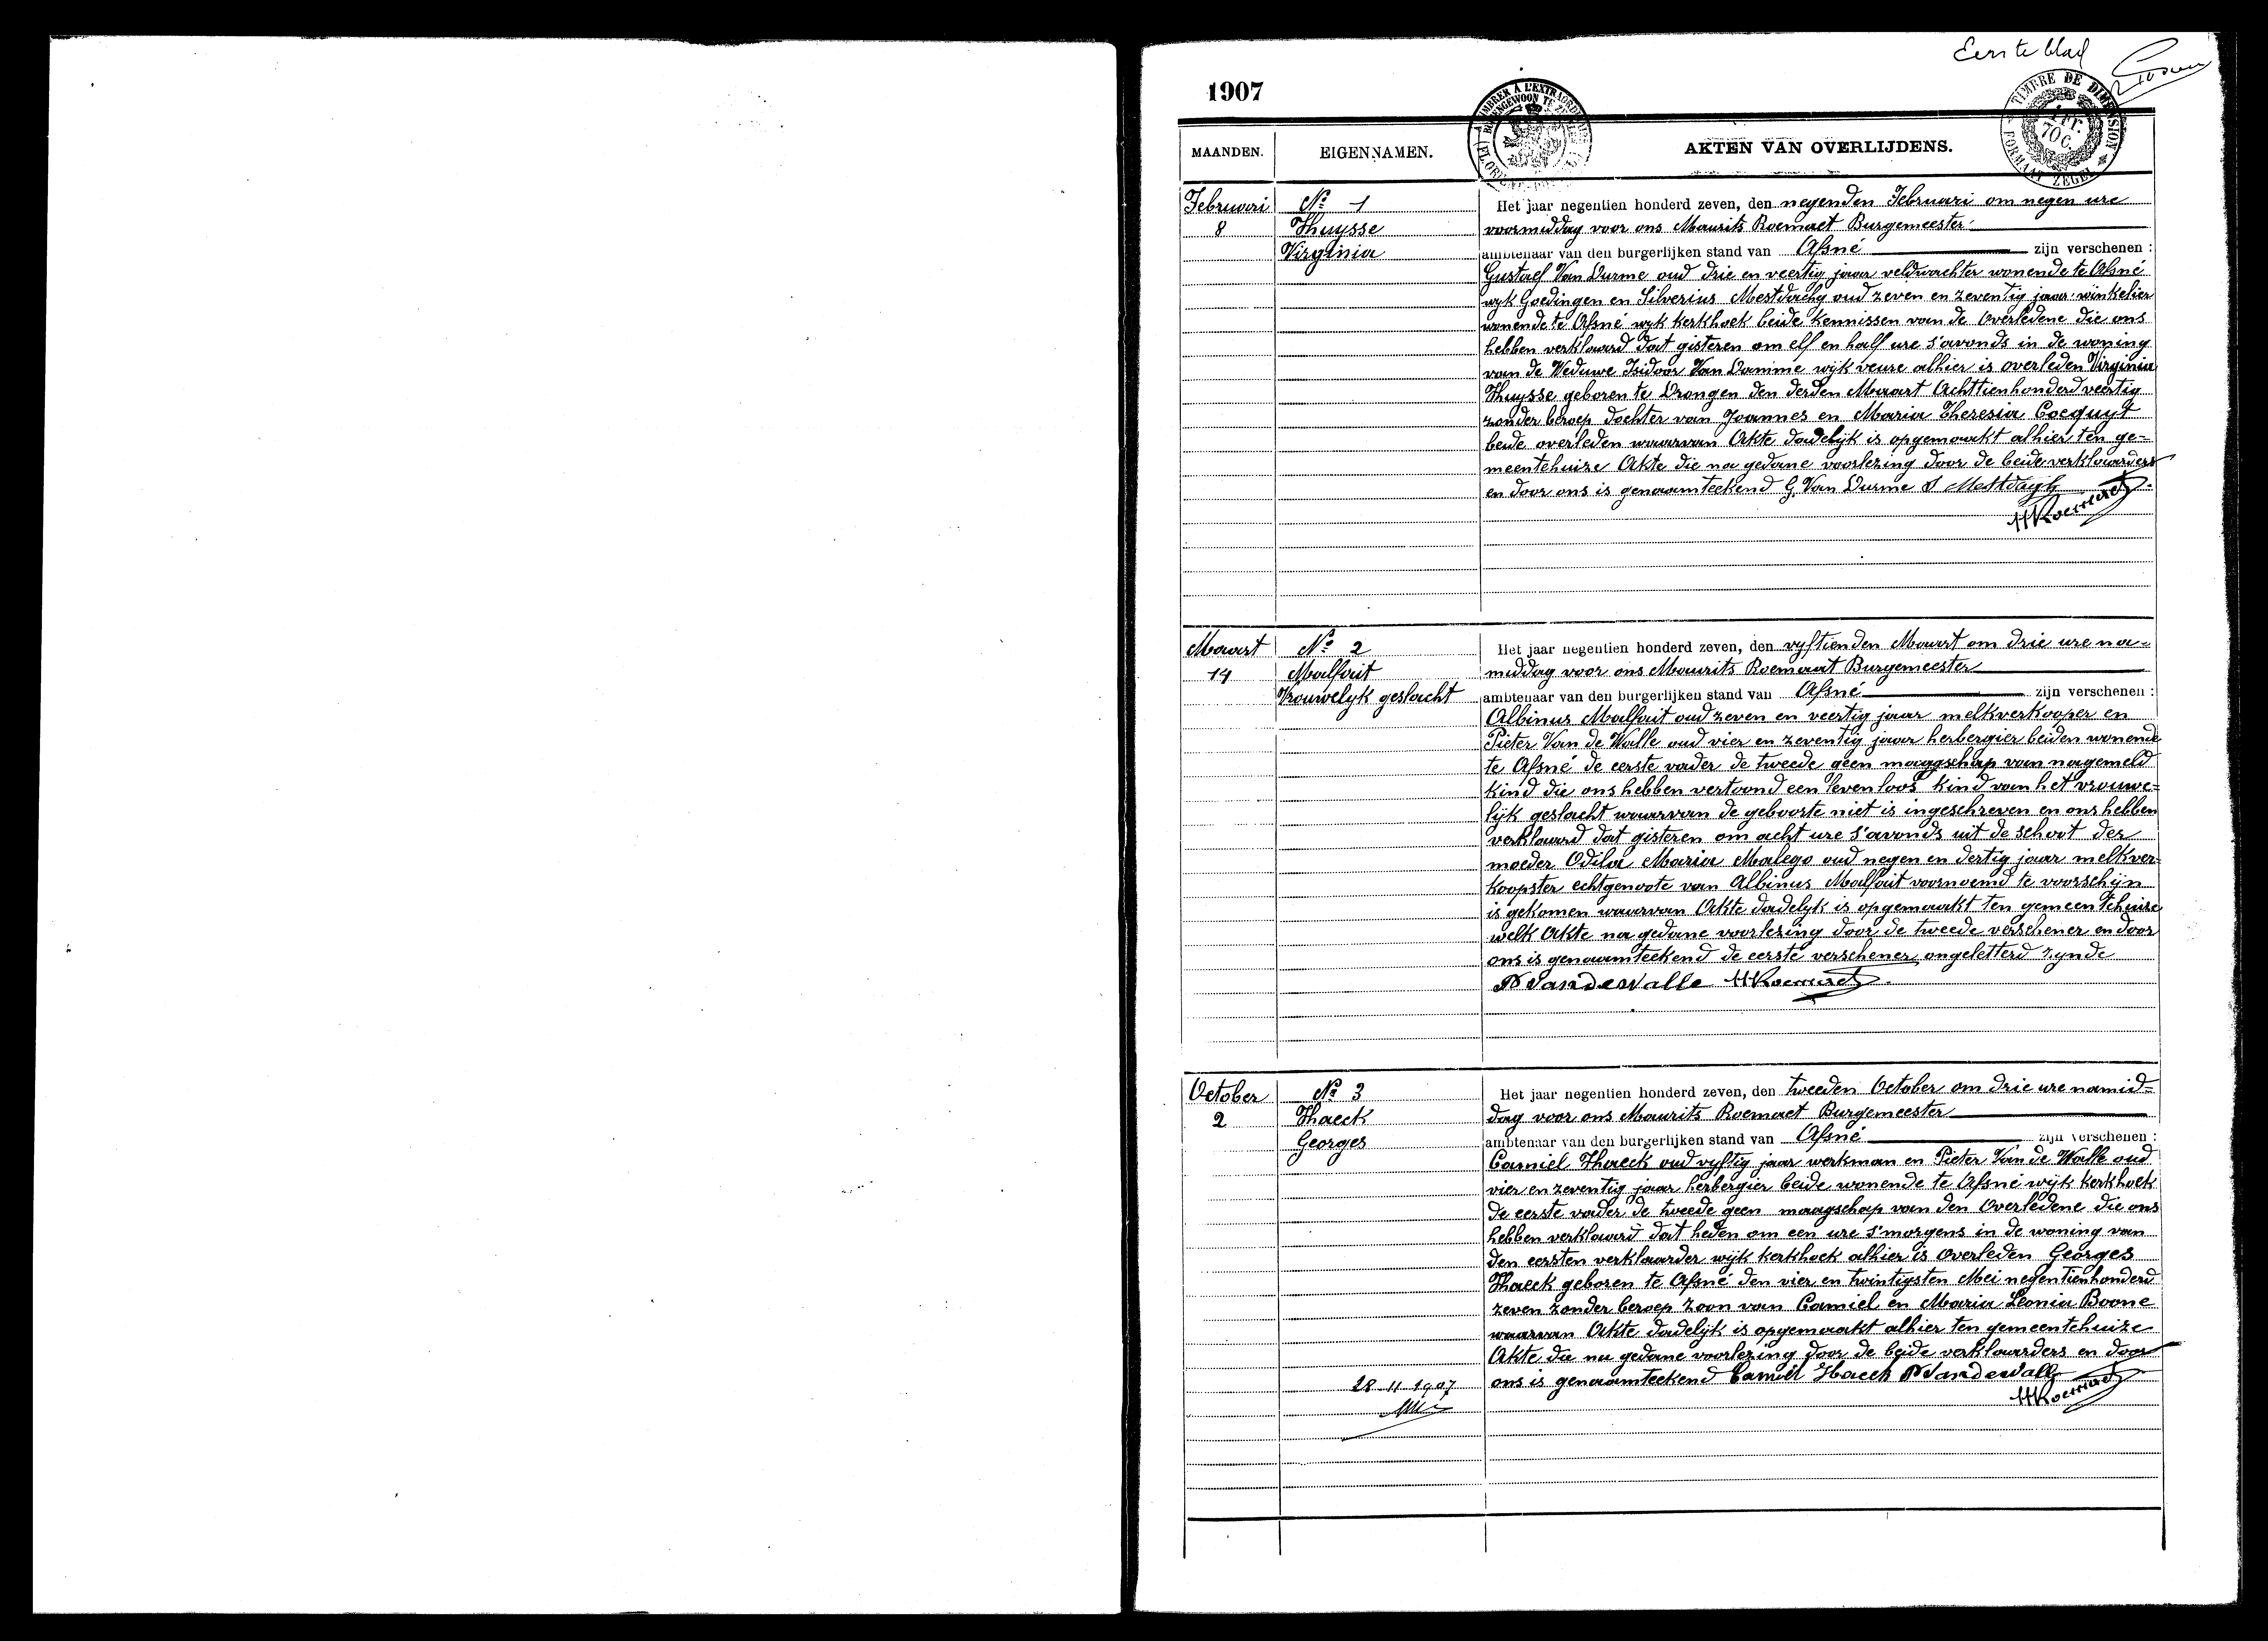 Eerste blad
1907
TIMBRE DE DIMENSION
1 FR. 70 C.
FORMAAT ZEGEL
MAANDEN. EIGENNAMEN. AKTEN VAN OVERLIJDENS.
Februari
8
Nº 1
Thuysse
Virginia
Het jaar negentien honderd zeven, den negenden Februari om negen ure
voormiddag voor ons Maurits Roemaet Burgemeester
ambtenaar van den burgerlijken stand van Afsné zijn verschenen :
Gustaef Van Durme oud drie en veertig jaar veldwachter wonende te Afsné
wyk Goedingen en Silverius Mestdachg oud zeven en zeventig jaar winkelier
wonende te Afsné wyk kerkhoek beide kennissen van de Overledene die ons
hebben verklaard dat gisteren om elf en half ure s'avonds in de woning
van de Weduwe Isidoor Van Damme wijk veure alhier is overleden Virginia
Thuysse geboren te Drongen den derden Maart Achttienhonderd veertig
zonder beroep dochter van Joannes en Maria Theresia Cocquyt
beide overleden waarvan Akte dadelijk is opgemaakt alhier ten ge-
meentehuize Akte die na gedane voorlezing door de beide verklaarders
en door ons is genaamteekend G. Van Durme S Mestdagh
MRoemaet
Maart
14
Nº 2
Malfait
Vrouwelyk geslacht
Het jaar negentien honderd zeven, den vyftienden Maart om drie ure na-
middag voor ons Maurits Roemaat Burgemeester
ambtenaar van den burgerlijken stand van Afsné zijn verschenen :
Albinus Malfait oud zeven en veertig jaar melkverkooper en
Pieter Van de Walle oud vier en zeventig jaar herbergier beiden wonende
te Afsné de eerste vader de tweede geen maagschap van nagemeld
kind die ons hebben vertoond een levenloos kind van het vrouwe-
lijk geslacht waarvan de geboorte niet is ingeschreven en ons hebben
verklaard dat gisteren om acht ure s'avonds uit de schoot der
moeder Odila Maria Malego oud negen en dertig jaar melkver-
koopster echtgenoote van Albinus Malfait voornoemd te voorschijn
is gekomen waarvan Akte dadelyk is opgemaakt ten gemeentehuize
welk Akte na gedane voorlezing door de tweede verschener en door
ons is genaamteekend de eerste verschener ongeletterd zynde
P Vandewalle MRoemaet
October
2
Nº 3
Thaeck
Georges
Het jaar negentien honderd zeven, den tweeden October om drie ure namid-
dag voor ons Maurits Roemaet Burgemeester
ambtenaar van den burgerlijken stand van Afsné zijn verschenen :
Camiel Thaeck oud vyftig jaar werkman en Pieter Van de Walle oud
vier en zeventig jaar herbergier beide wonende te Afsné wijk kerkhoek
de eerste vader de tweede geen maagschap van den Overledene die ons
hebben verklaard dat heden om een ure s'morgens in de woning van
den eersten verklaarder wijk kerkhoek alhier is overleden Georges
Thaeck geboren te Afsné den vier en twintigsten Mei negentienhonderd
zeven zonder beroep zoon van Camiel en Maria Leonia Boone
waarvan Akte dadelijk is opgemaakt alhier ten gemeentehuize
Akte die na gedane voorlezing door de beide verklaarders en door
ons is genaamteekend Camiel Haeck P Vandewalle
MRoemaet
28 11 1907